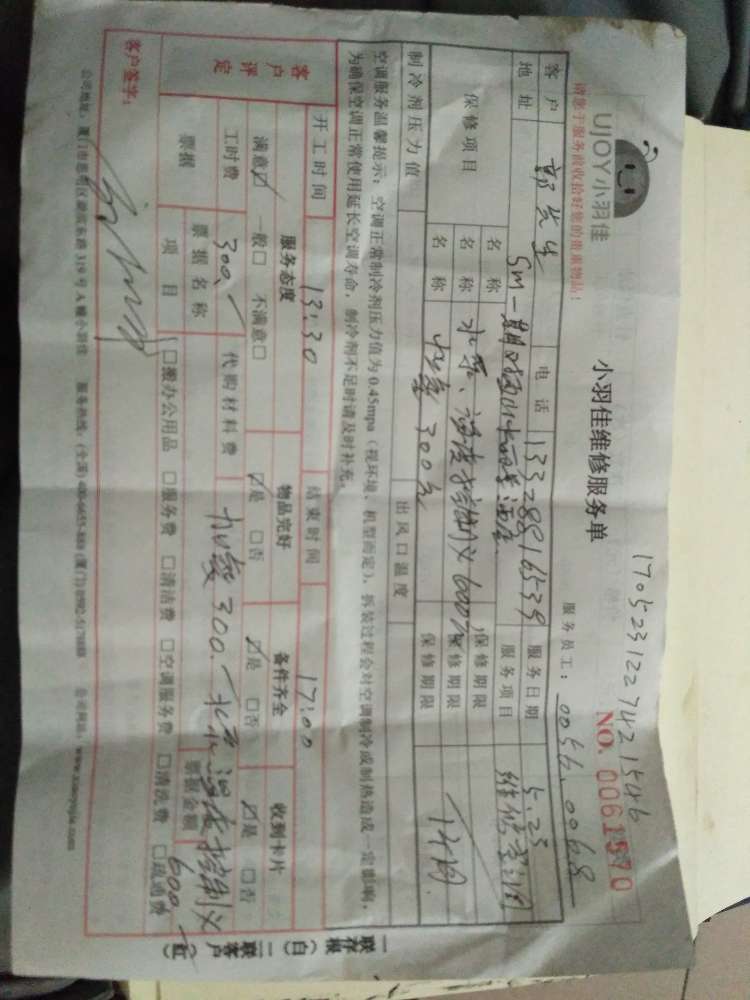 UJOY小羽佳
请您于服务前收拾好您的贵重物品！
小羽佳维修服务单
1705231227421546
NO. 0061570
服务员工：0056.0068
客户 郭先生 电话 13328816539 服务日期 5.23
地址 SM一期 酒店 服务项目 维修空调
保修项目 名称 水泵、温度控制仪600元 保修期限
名称 加氨300元 保修期限
名称 保修期限
制冷剂压力值 出风口温度
空调服务温馨提示：空调正常制冷剂压力值为0.45mpa（视环境、机型而定），拆装过程会对空调制冷或制热造成一定影响，
为确保空调正常使用延长空调寿命，制冷剂不足时请及时补充。
开工时间 13:30 结束时间 17:00
客户评定 服务态度 物品完好 备件齐全 收到卡片
满意☑ 一般□ 不满意□ ☑是 □否 ☑是 □否 ☑是 □否
工时费 300. 代购材料费 加氨300. 水泵温度控制仪600
票据 票据名称 票据金额
项目 □搬办公用品 □服务费 □清洁费 □空调服务费 □清洗费 □疏通费
客户签字：
公司地址：厦门市思明区 319号A幢小羽佳 服务热线：(全国)400-6653-888 (厦门)0592-5178888 公司网站：www.xiaoyujia.com
一联存根（白） 二联客户（红）